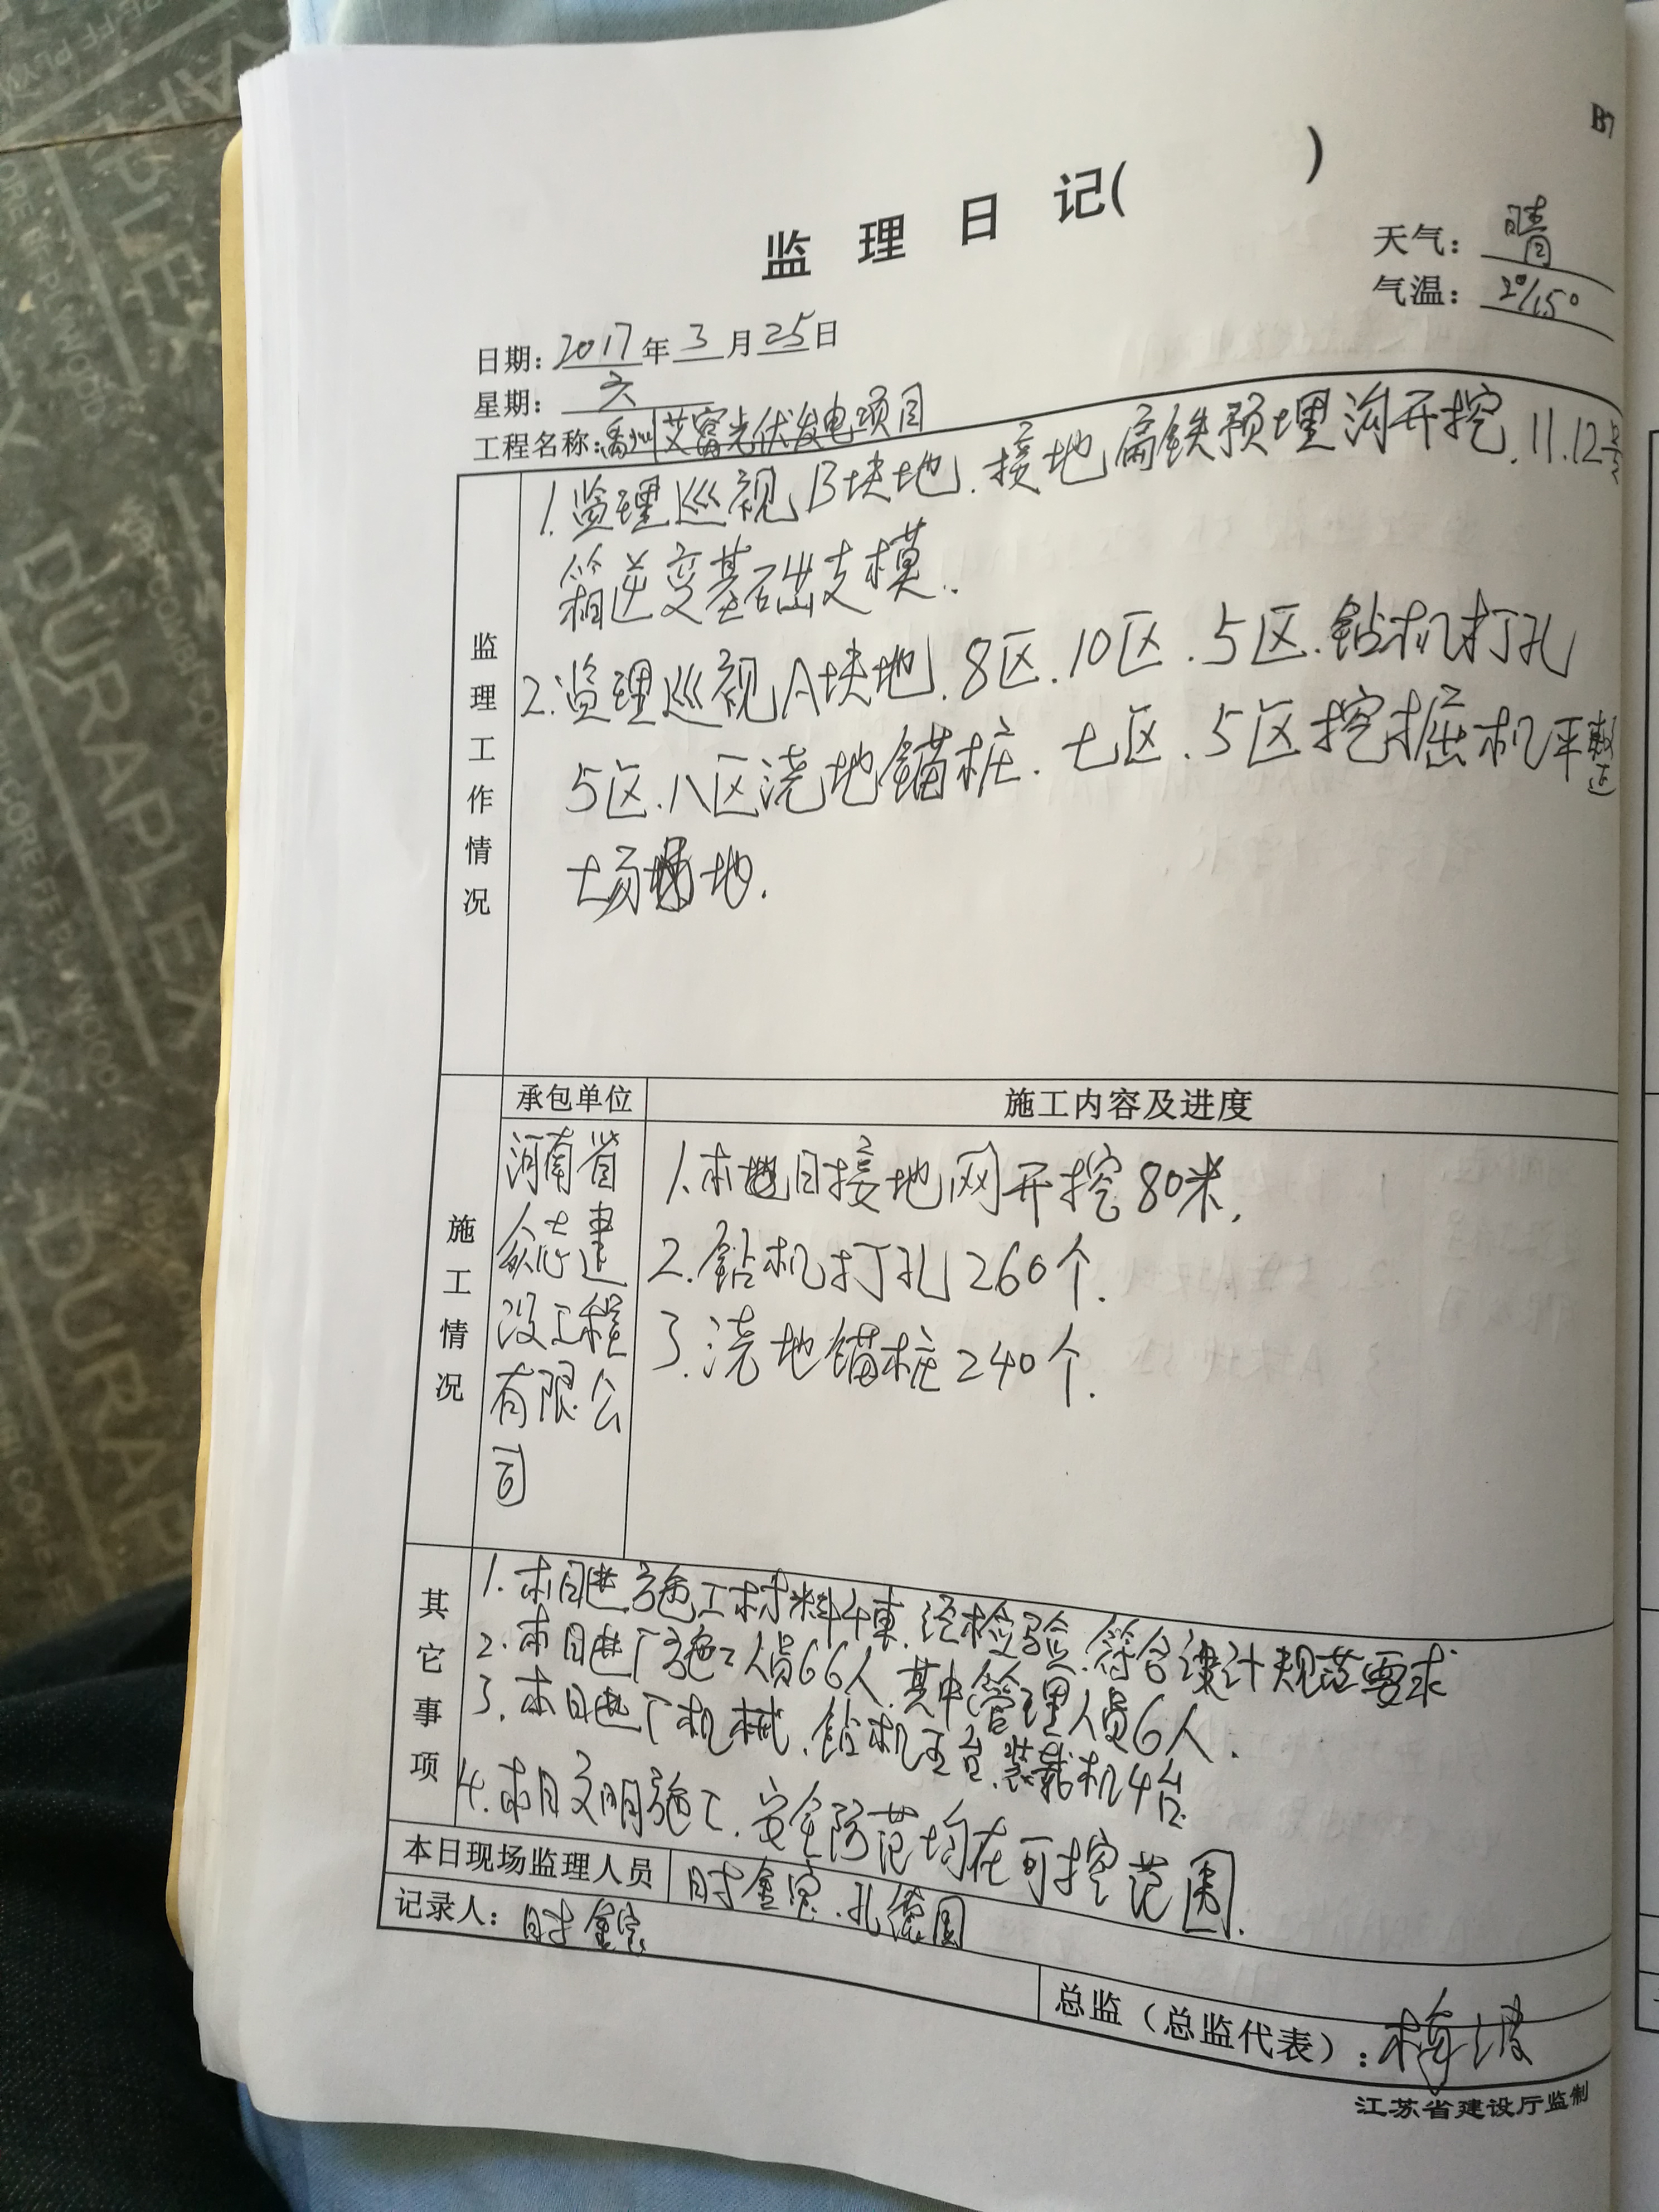 B7
监 理 日 记( )
天气: 晴
气温: 2°/15°
日期: 2017 年 3 月 25 日
星期: 六
工程名称: 禹州艾富光伏发电项目
监理工作情况
1.监理巡视B块地.接地扁铁预埋沟开挖.11.12号
箱逆变基础支模.
2.监理巡视A块地.8区.10区.5区.钻机打孔
5区.八区浇地锚桩.七区.5区挖掘机平整
场地.
施工情况
承包单位
施工内容及进度
河南省
众志建
设工程
有限公
司
1.本日接地网开挖80米.
2.钻机打孔260个.
3.浇地锚桩240个.
其它事项
1.本日进施工材料4車.经检验.符合设计规范要求
2.本日进厂施工人员66人.其中管理人员6人.
3.本日进厂机械.钻机五台.装载机4台
4.本日文明施工.安全防范均在可控范围.
本日现场监理人员
时金宗.孔德国
记录人: 时金宗
总监（总监代表）: 梅波
江苏省建设厅监制
DURAPLEX
DURAPLEX
DURAP